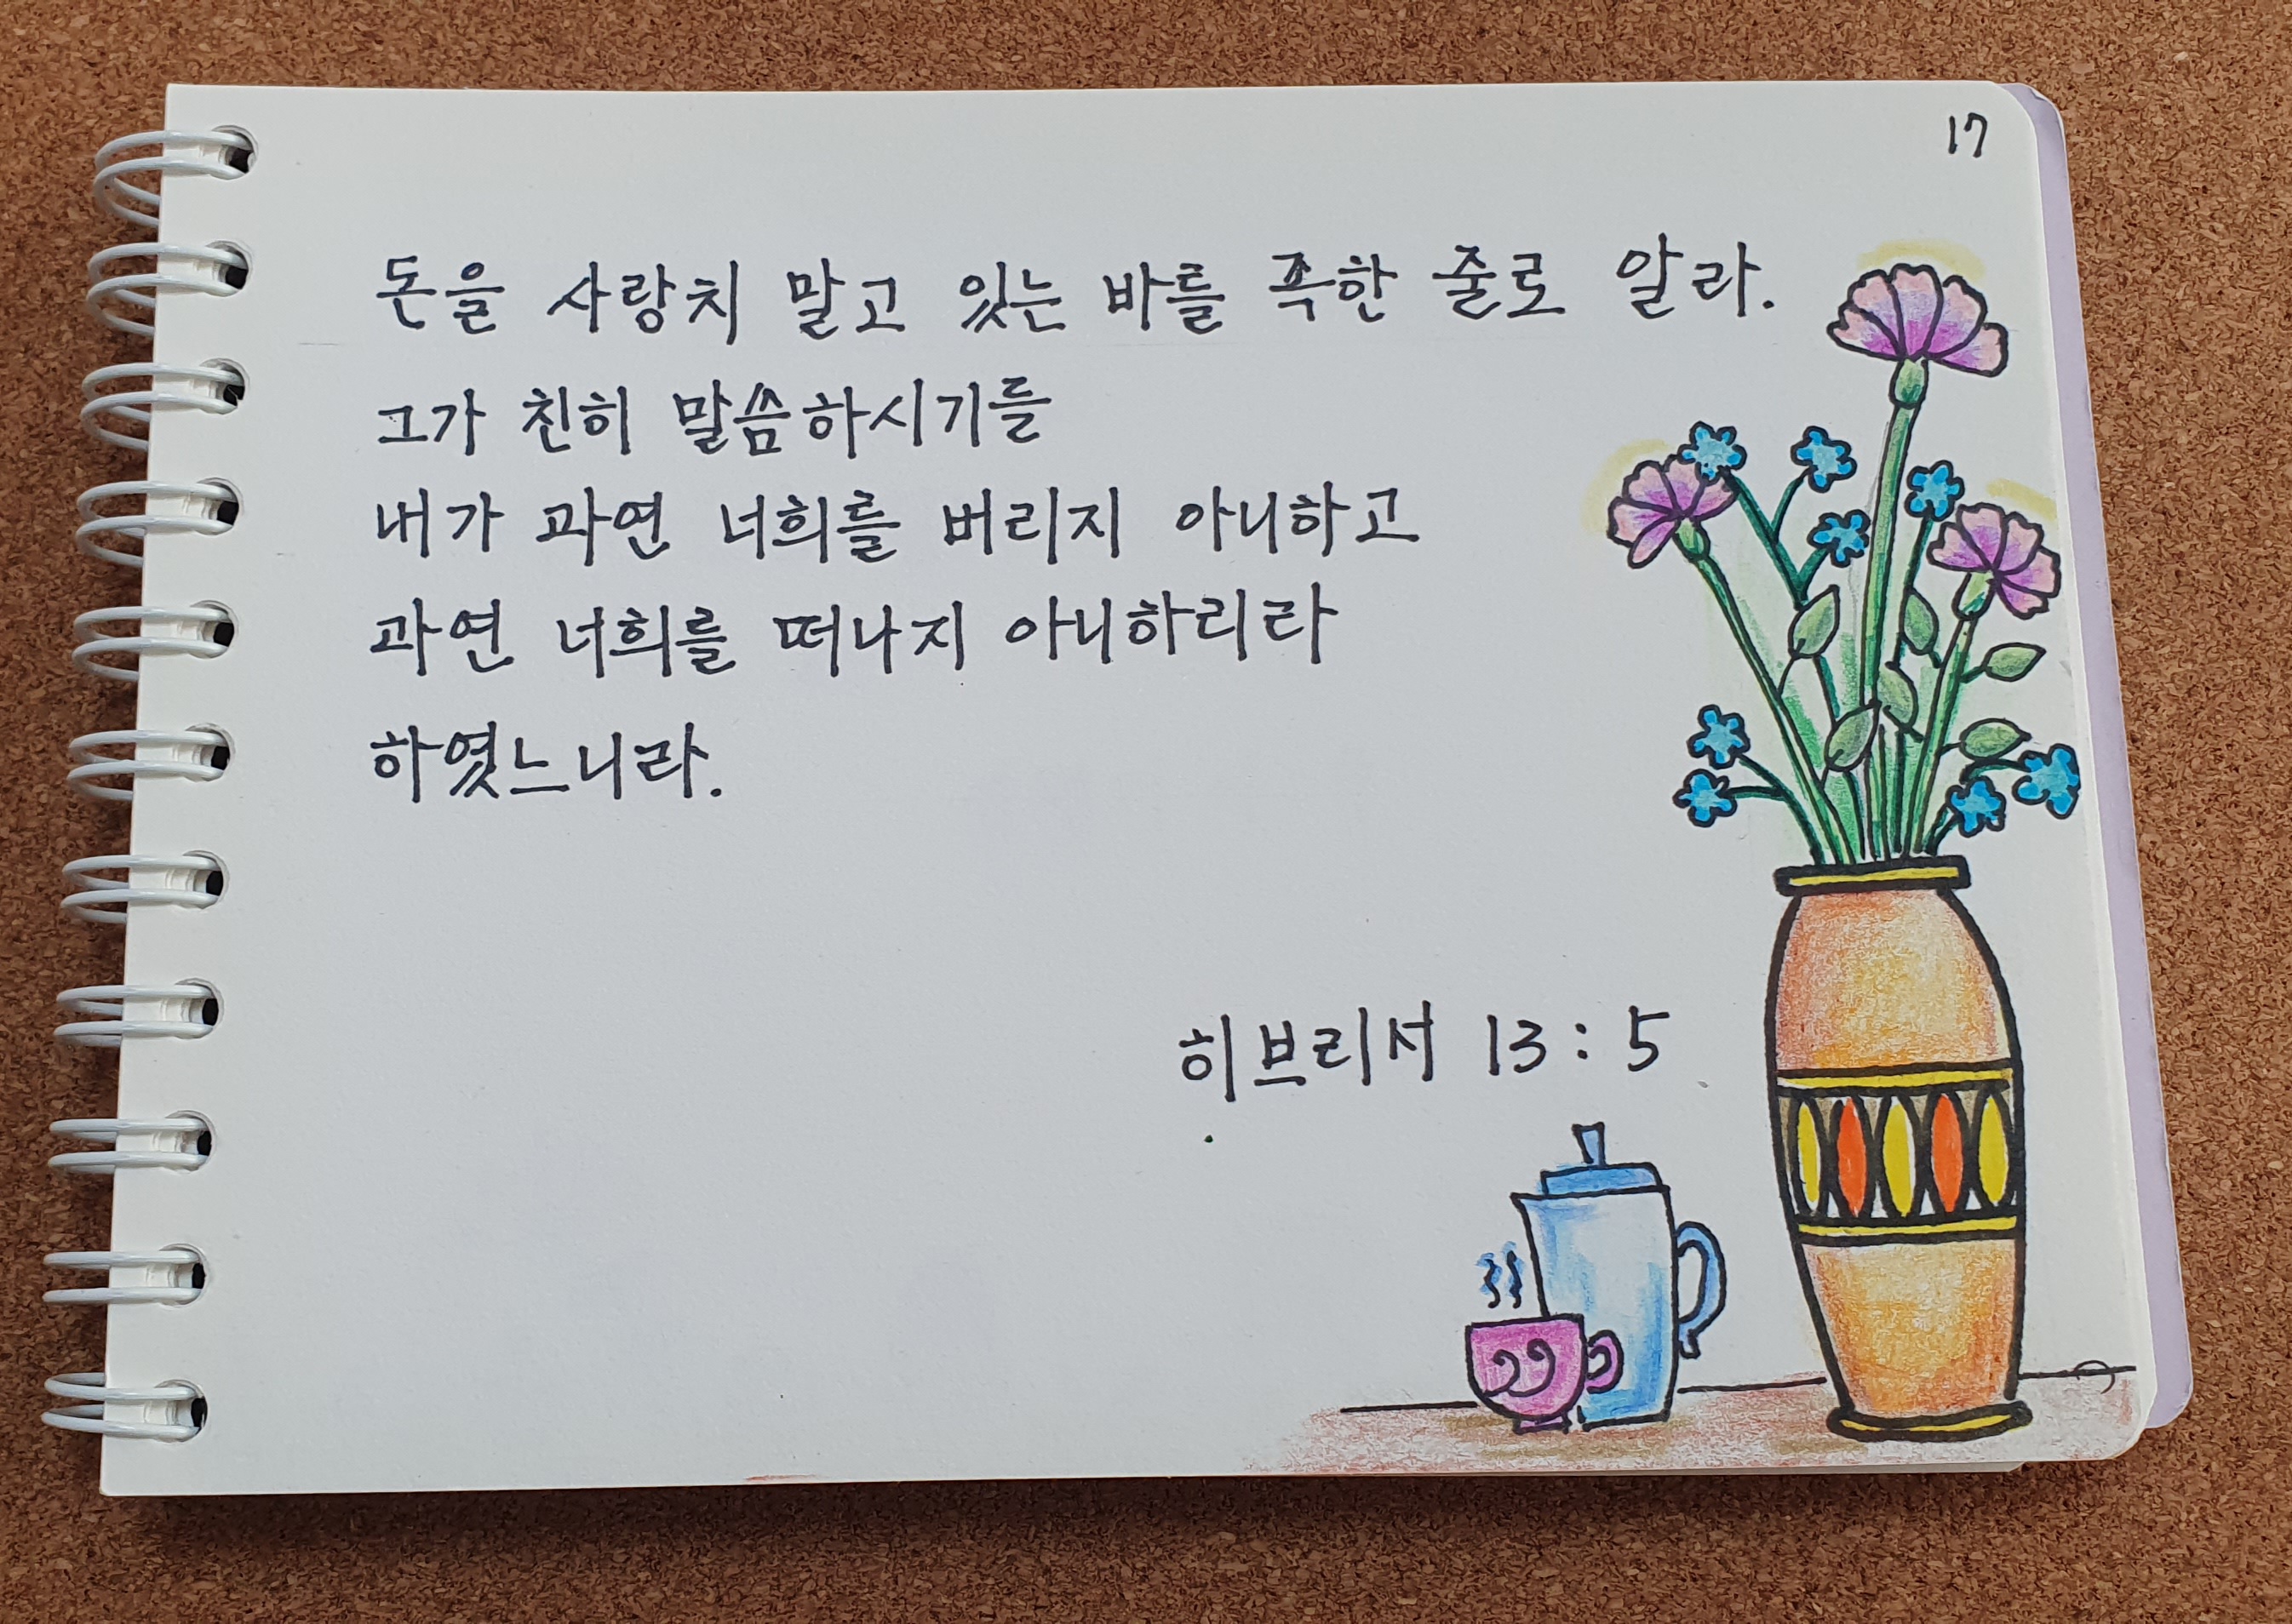 17
돈을 사랑치 말고 있는 바를 족한 줄로 알라.
그가 친히 말씀하시기를
내가 과연 너희를 버리지 아니하고
과연 너희를 떠나지 아니하리라
하였느니라.
히브리서 13:5